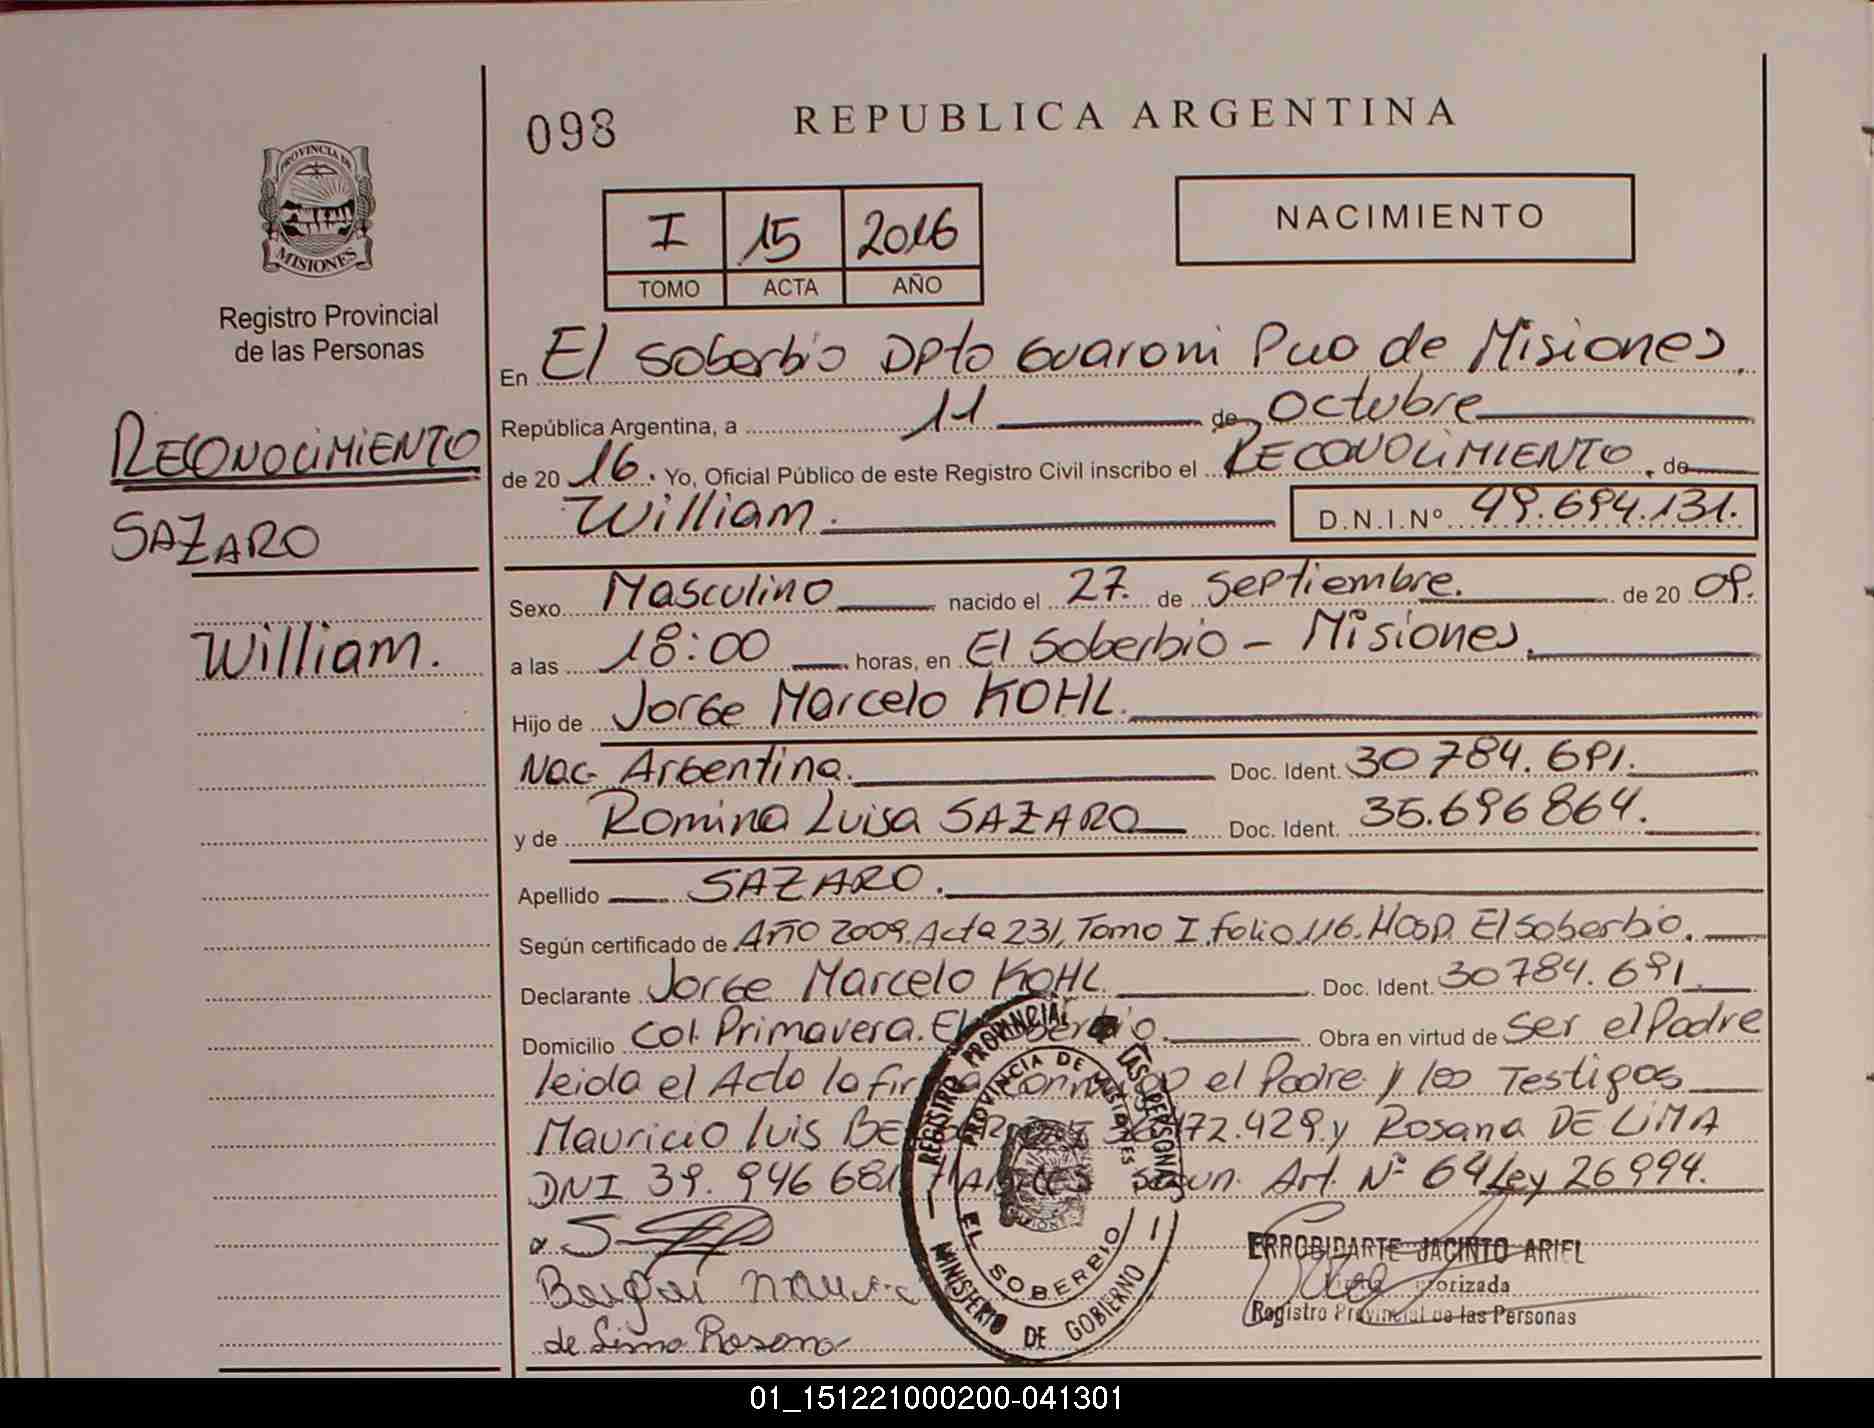 098
REPUBLICA ARGENTINA
PROVINCIA DE
MISIONES
Registro Provincial
de las Personas
I 15 2016
TOMO ACTA AÑO
NACIMIENTO
RECONOCIMIENTO
SAZARO
William.
En El Soberbio Dpto Guarani Pcia de Misiones
República Argentina, a 11 de Octubre
de 20 16. Yo, Oficial Público de este Registro Civil inscribo el RECONOCIMIENTO. de
William. D.N.I.Nº 49.694.131.
Sexo Masculino nacido el 27. de Septiembre. de 20 09.
a las 18:00 horas, en El Soberbio - Misiones.
Hijo de Jorge Marcelo KOHL.
Nac. Argentina. Doc. Ident. 30784.691.
y de Romina Luisa SAZARO Doc. Ident. 35.696864.
Apellido SAZARO.
Según certificado de Año 2009. Acta 231, Tomo I. folio 116. Hosp. El Soberbio.
Declarante Jorge Marcelo KOHL. Doc. Ident. 30784.691.
Domicilio Col. Primavera. El Soberbio. Obra en virtud de Ser el Padre
leida el Acta la firma conmigo el Padre y los Testigos
Mauricio Luis 172.429 y Rosana DE LIMA
DNI 39.946 681 Segun. Art. Nº 64 Ley 26994.
de Lima Rosana
REGISTRO PROVINCIAL DE LAS PERSONAS
PROVINCIA DE MISIONES
EL SOBERBIO
MINISTERIO DE GOBIERNO
ERROBIDARTE JACINTO ARIEL
Registro Provincial de las Personas
01_151221000200-041301